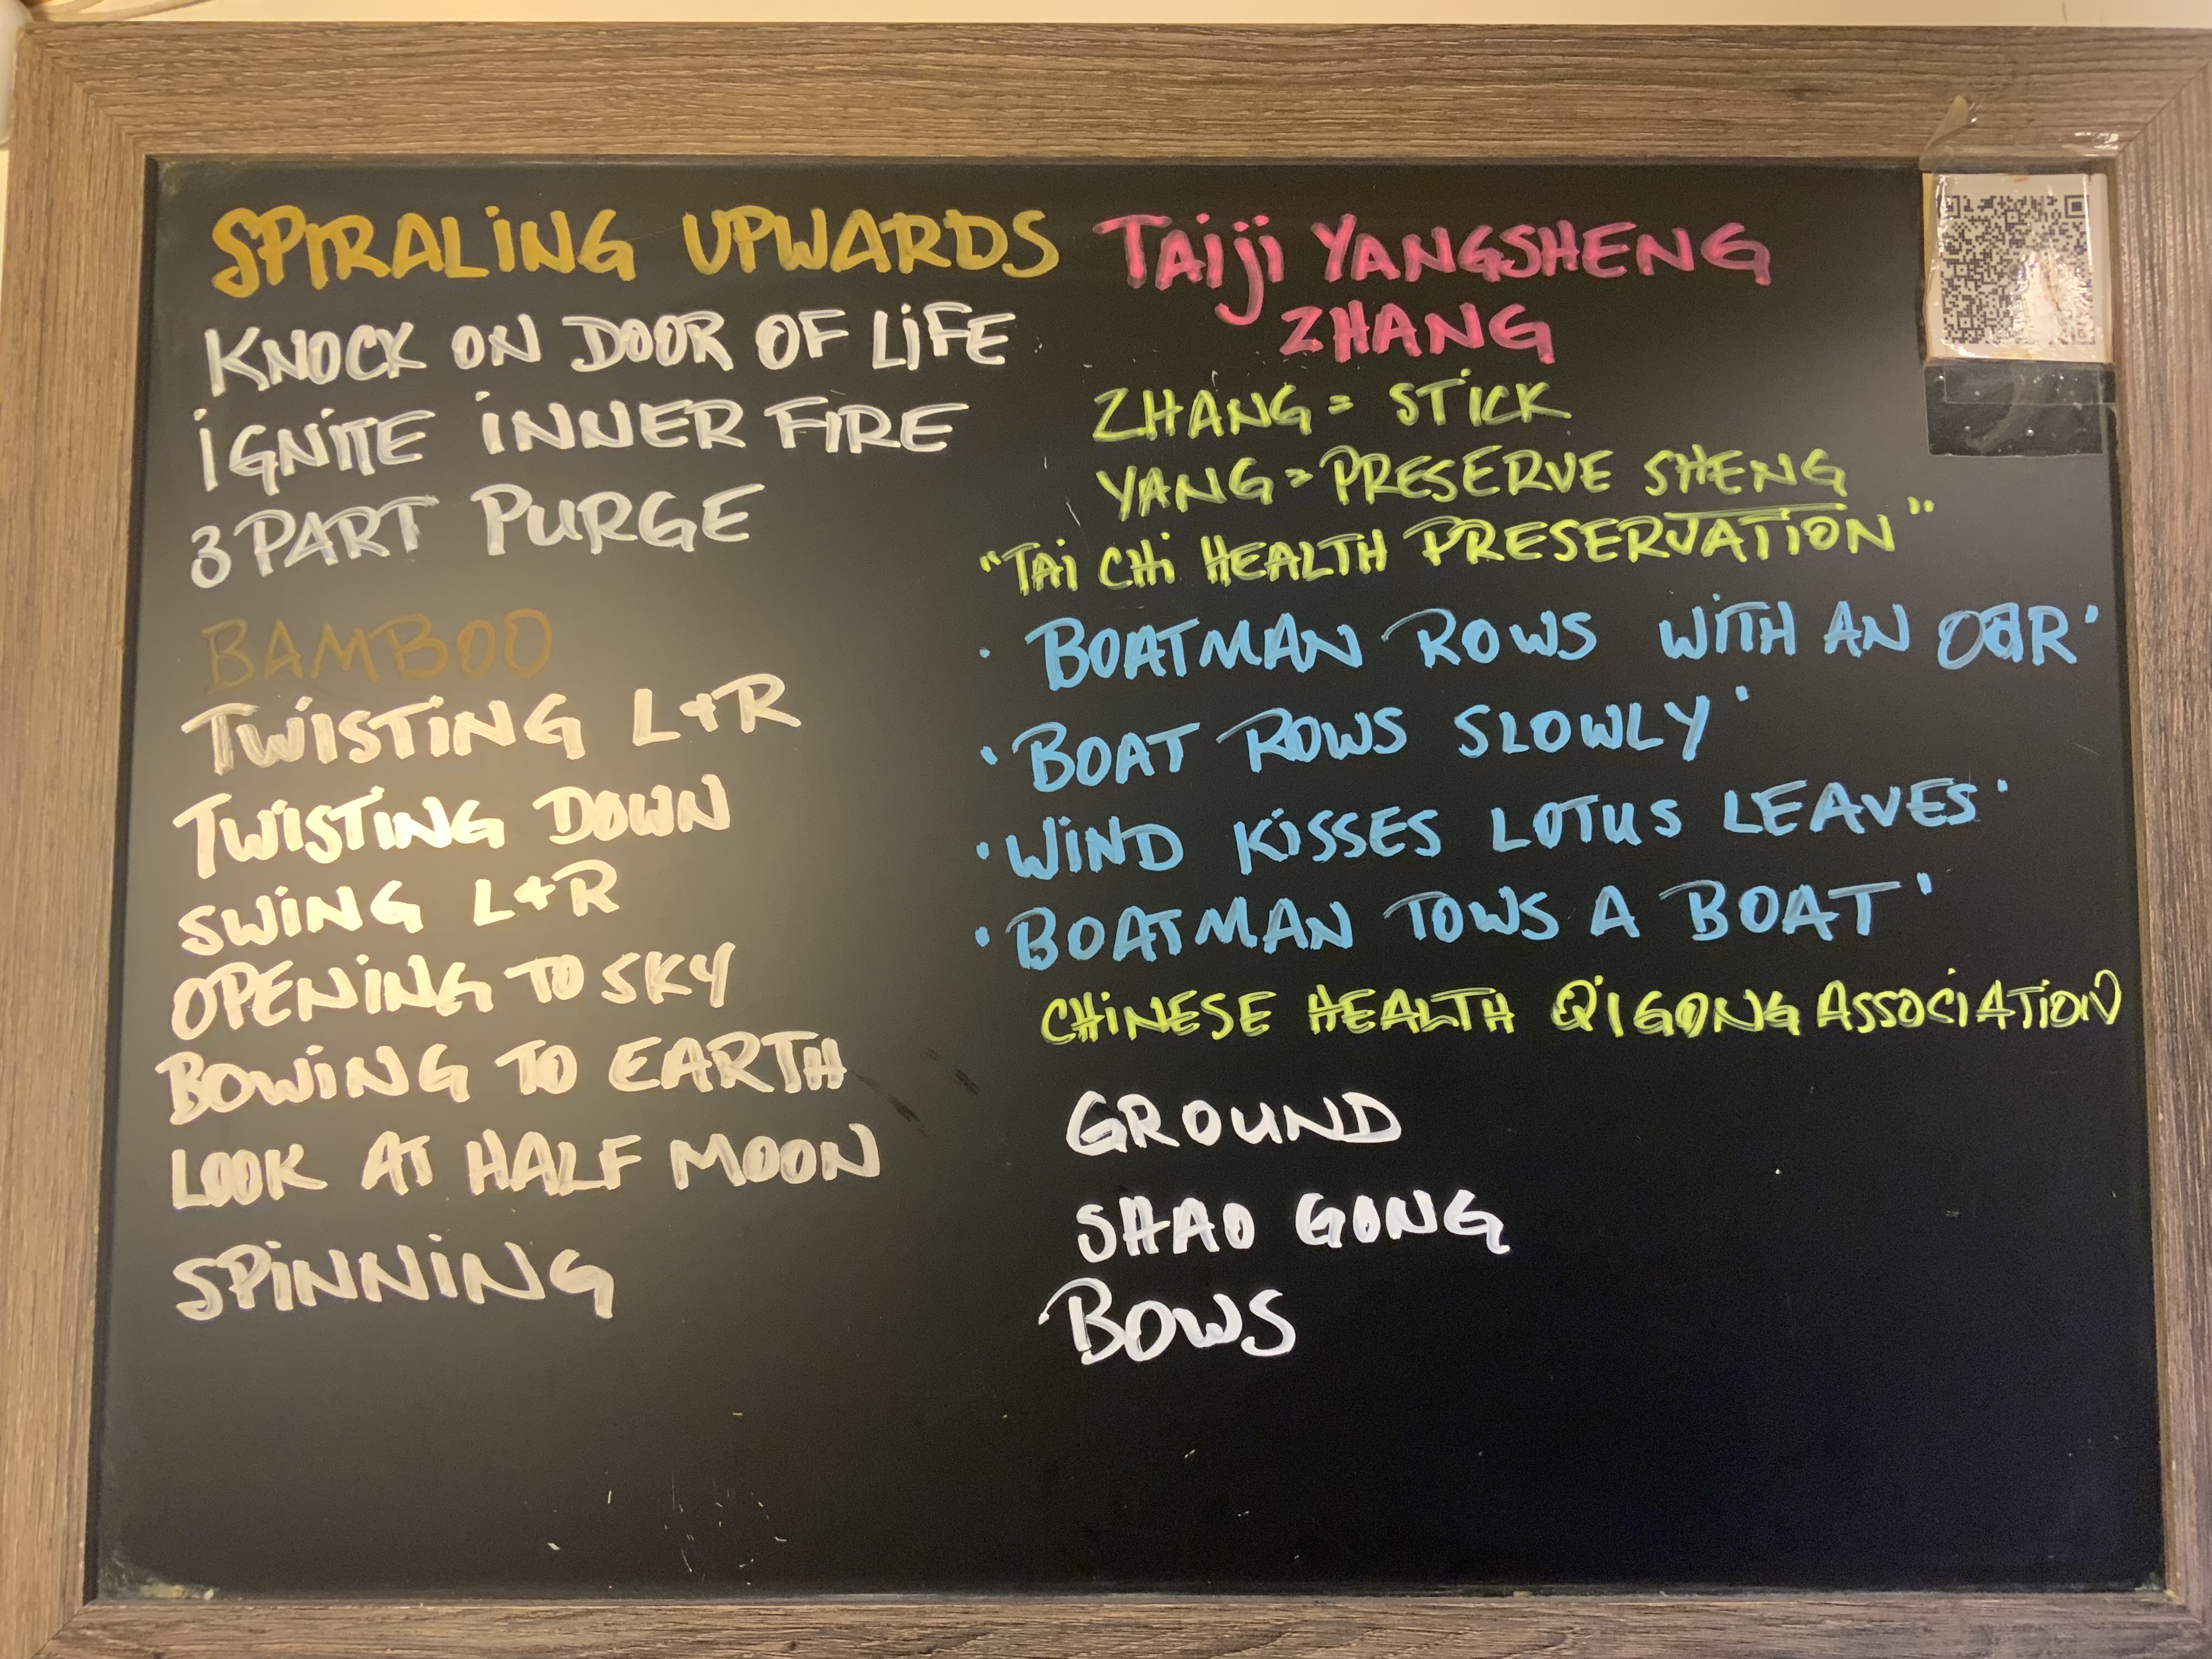 SPIRALING UPWARDS
KNOCK ON DOOR OF LIFE
IGNITE INNER FIRE
3 PART PURGE
BAMBOO
TWISTING L+R
TWISTING DOWN
SWING L+R
OPENING TO SKY
BOWING TO EARTH
LOOK AT HALF MOON
SPINNING
TAIJI YANGSHENG
ZHANG
ZHANG = STICK
YANG = PRESERVE SHENG
"TAI CHI HEALTH PRESERVATION"
'BOATMAN ROWS WITH AN OAR'
'BOAT ROWS SLOWLY'
'WIND KISSES LOTUS LEAVES'
'BOATMAN TOWS A BOAT'
CHINESE HEALTH QIGONG ASSOCIATION
GROUND
SHAO GONG
BOWS